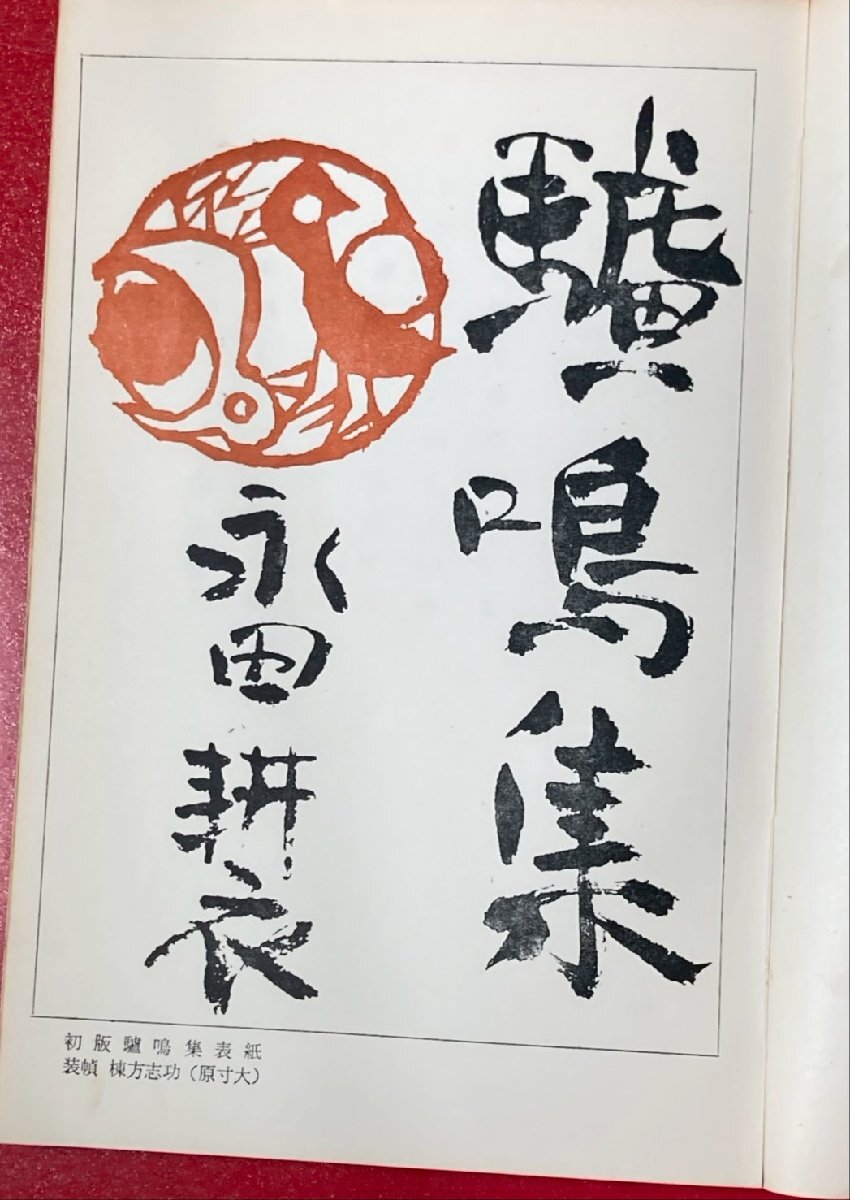 驢鳴集
永田耕衣
初版驢鳴集表紙
装幀 棟方志功（原寸大）